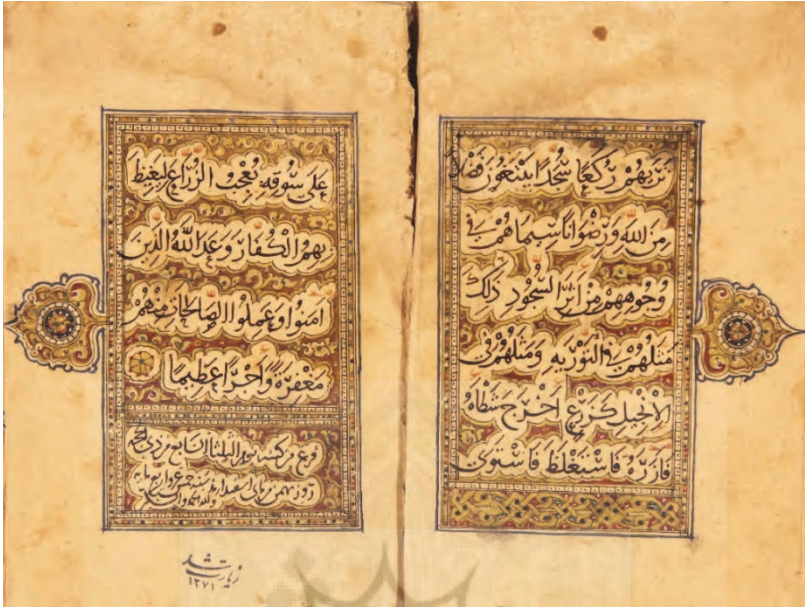 تَرَيهُمْ رُكَّعًا سُجَّدًا يَبْتَغُونَ فَضْلًا
مِنَ اللهِ وَرِضْوَانًا سِيمَاهُمْ فِي
وُجُوهِهِمْ مِنْ اَثَرِ السُّجُودِ ذَلِكَ
مَثَلُهُمْ فِي التَّوْرَيةِ وَمَثَلُهُمْ فِي
الْاِنْجِيلِ كَزَرْعٍ اَخْرَجَ شَطْاَهُ
فَآزَرَهُ فَاسْتَغْلَظَ فَاسْتَوَى
عَلَى سُوقِهِ يُعْجِبُ الزُّرَّاعَ لِيَغِيظَ
بِهِمُ الْكُفَّارَ وَعَدَ اللهُ الَّذِينَ
آمَنُوا وَعَمِلُوا الصَّالِحَاتِ مِنْهُمْ
مَغْفِرَةً وَاَجْرًا عَظِيمًا
من يوم الثلثا السابع من ذي الحجه
زيارت شد
١٢٧١